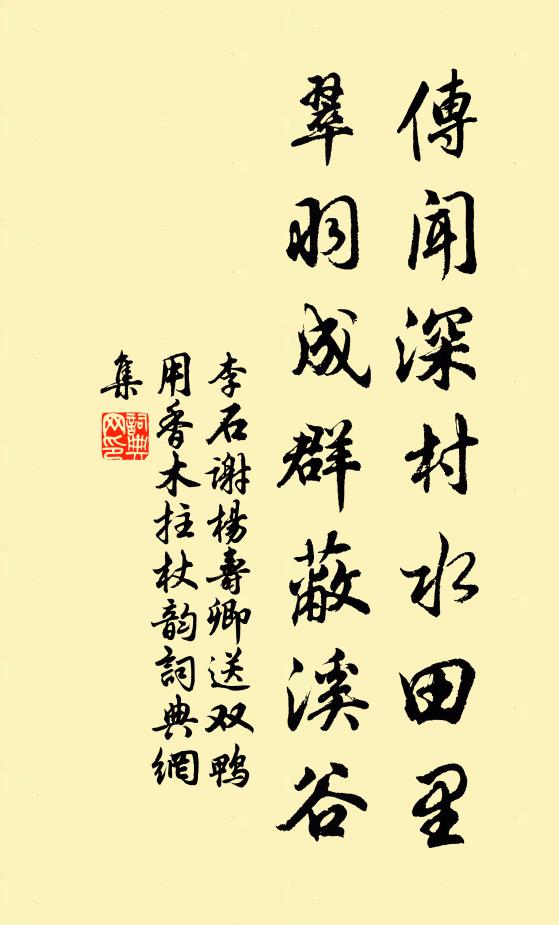 傳聞深村水田里
翠羽成群蔽溪谷
李石谢楊壽卿送双鸭
用香木拄杖韵詞典網
集
詞典网印